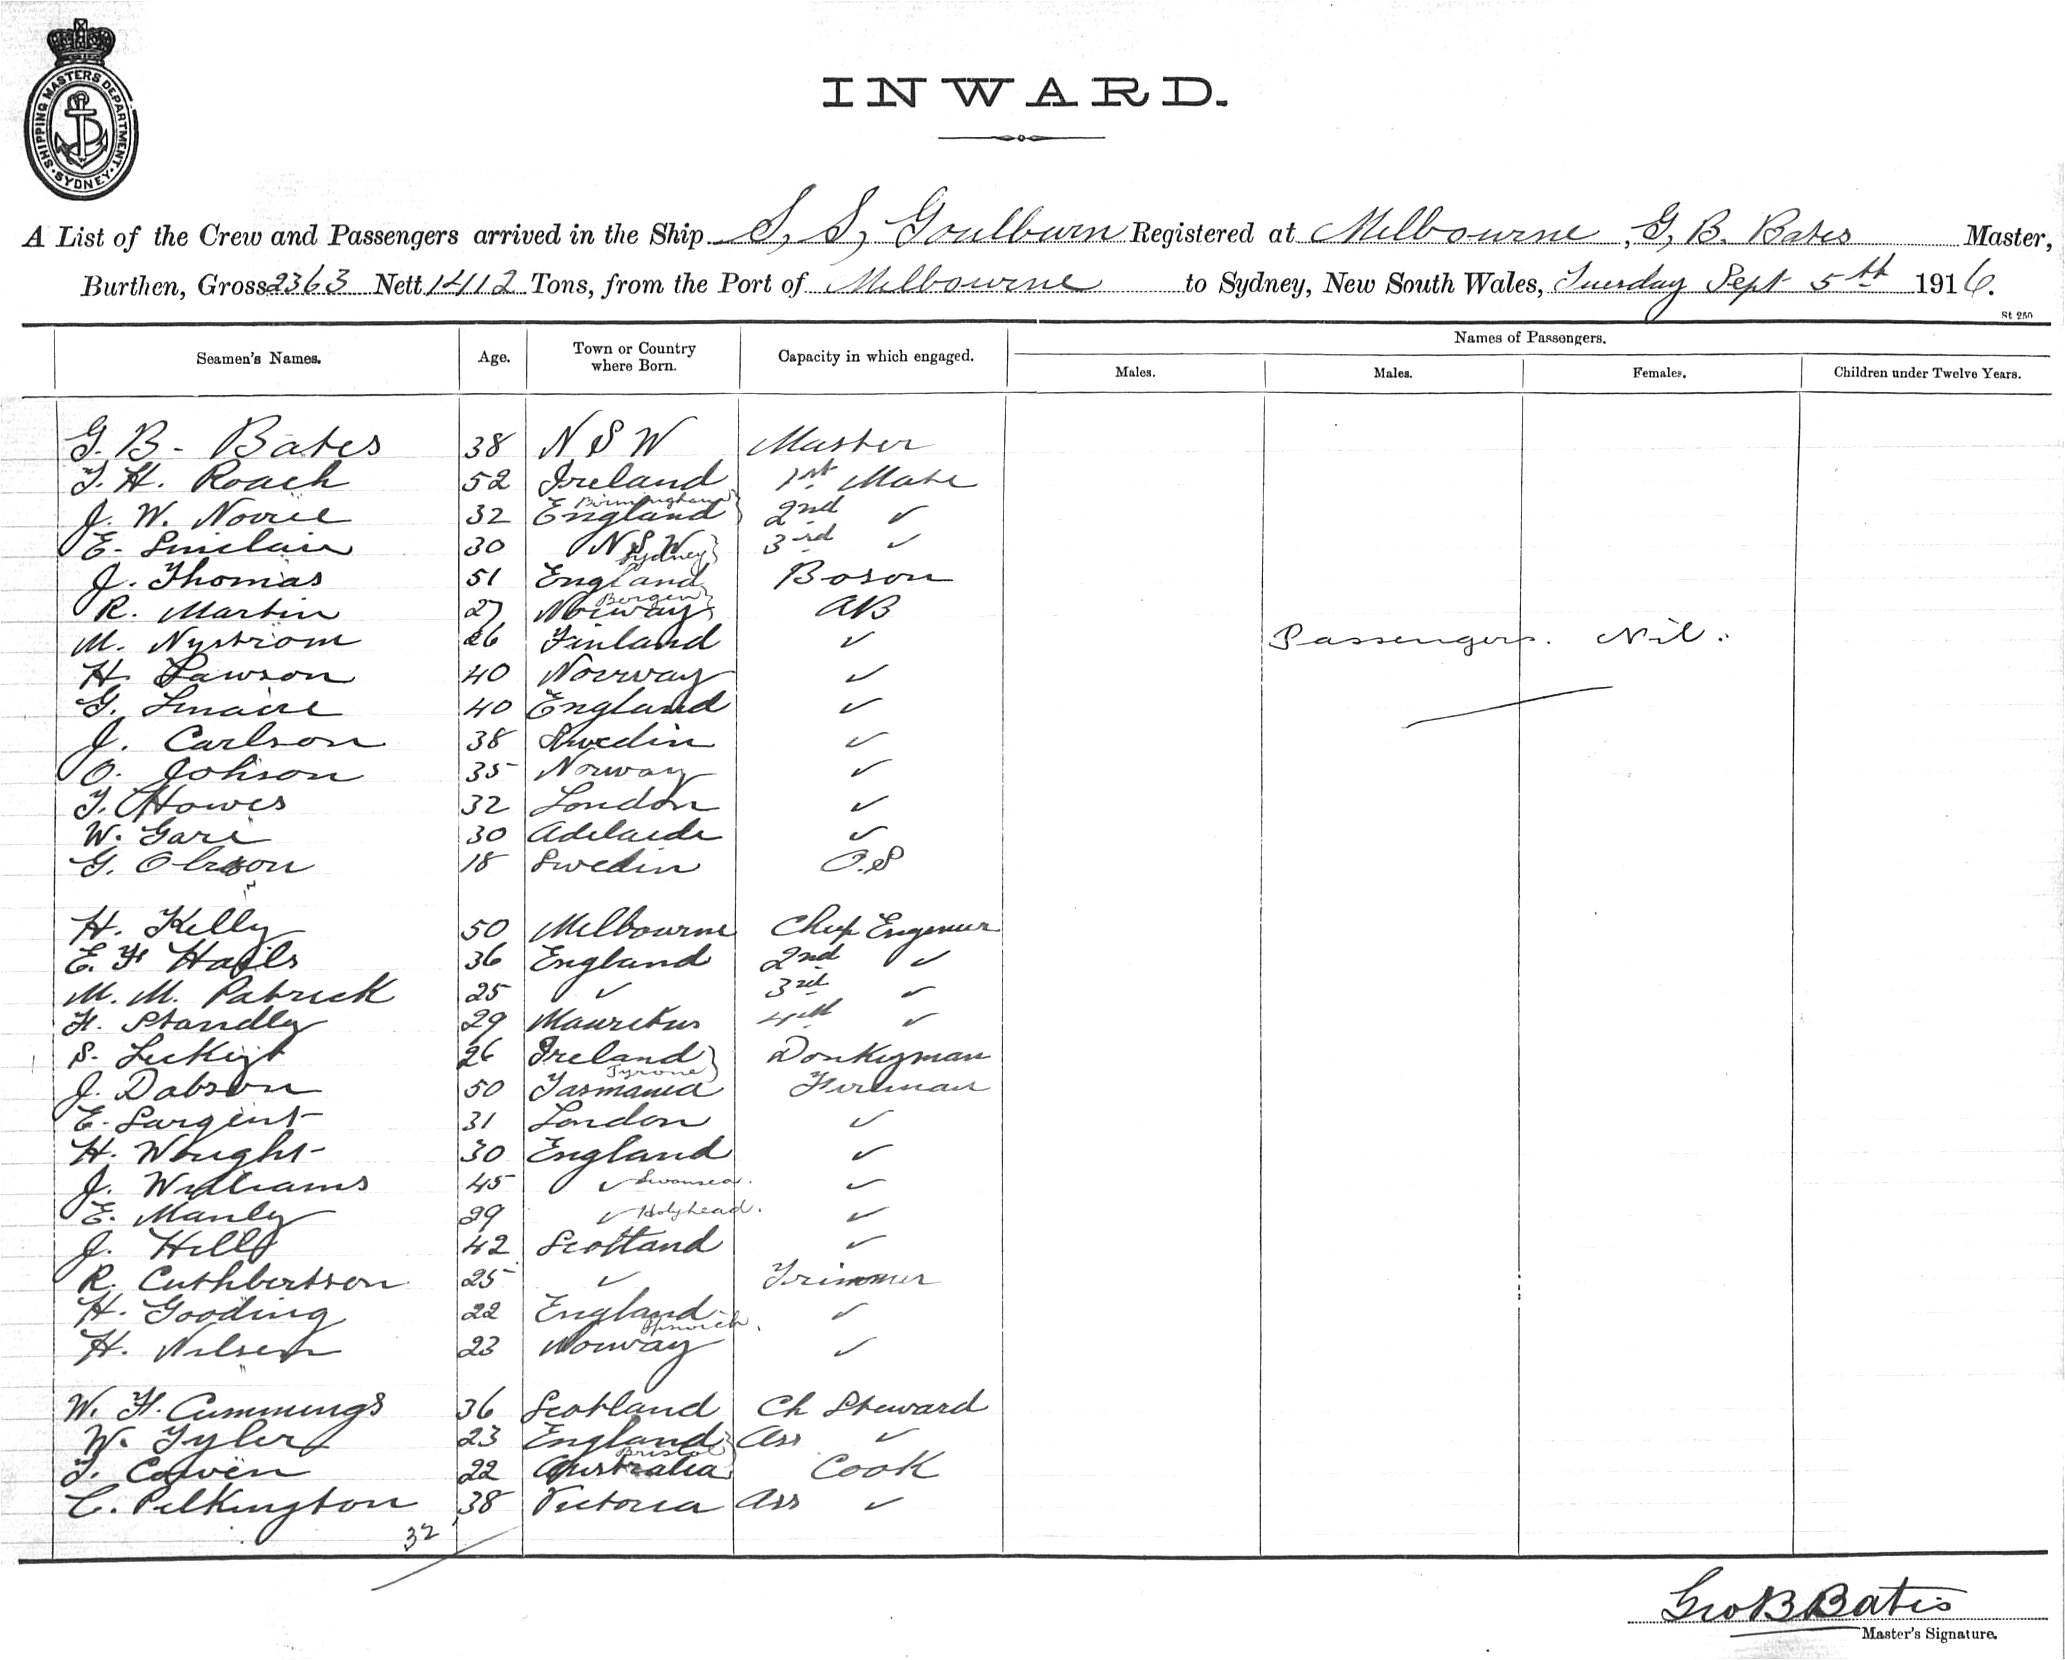 SHIPPING MASTERS DEPARTMENT. SYDNEY.
INWARD.
A List of the Crew and Passengers arrived in the Ship S, S, Goulburn Registered at Melbourne, G, B. Bates Master,
Burthen, Gross 2363 Nett 1412 Tons, from the Port of Melbourne to Sydney, New South Wales, Tuesday Sept 5th 1916.
St 250
Names of Passengers.
Seamen's Names. Age. Town or Country where Born. Capacity in which engaged. Males. Males. Females. Children under Twelve Years.
G. B - Bates 38 N S W Master
T. H. Roach 52 Ireland 1st Mate
J. W. Norrie 32 England Birmingham 2nd ✓
E. Sinclair 30 N S W Sydney 3rd ✓
J. Thomas 51 England Boson
R. Martin 27 Norway Bergen AB
M. Nystrom 26 Finland ✓ Passengers. Nil.
H. Lawson 40 Norway ✓
G. 40 England ✓
J. Carlson 38 Swedin ✓
O. Johson 35 Norway ✓
T. Howes 32 London ✓
W. Gare 30 Adelaide ✓
G. Olsson 18 Swedin O.S
H. Kelly 50 Melbourne Chief Engineer
E. F Hails 36 England 2nd ✓
M. M. Patrick 25 ✓ 3rd ✓
H. Standly 29 Mauretus 4th ✓
S. 26 Ireland Tyrone Donkeyman
J. Dobson 50 Tasmania Fireman
E. Sargent 31 London ✓
H. Wright 30 England ✓
J. Williams 45 ✓ Swansea. ✓
E. Manly 29 ✓ Holyhead. ✓
J. Hill 42 Scotland ✓
R. Cuthbertson 25 ✓ Trimmer
H. Gooding 22 England Ipswich. ✓
H. Nilsen 23 Norway ✓
W. H. Cummings 36 Scotland Ch Steward
W. Tyler 23 England Bristol Ass ✓
T. Cowen 22 Australia Cook
C. Pilkington 38 Victoria Ass ✓
32
Geo B Bates
Master's Signature.